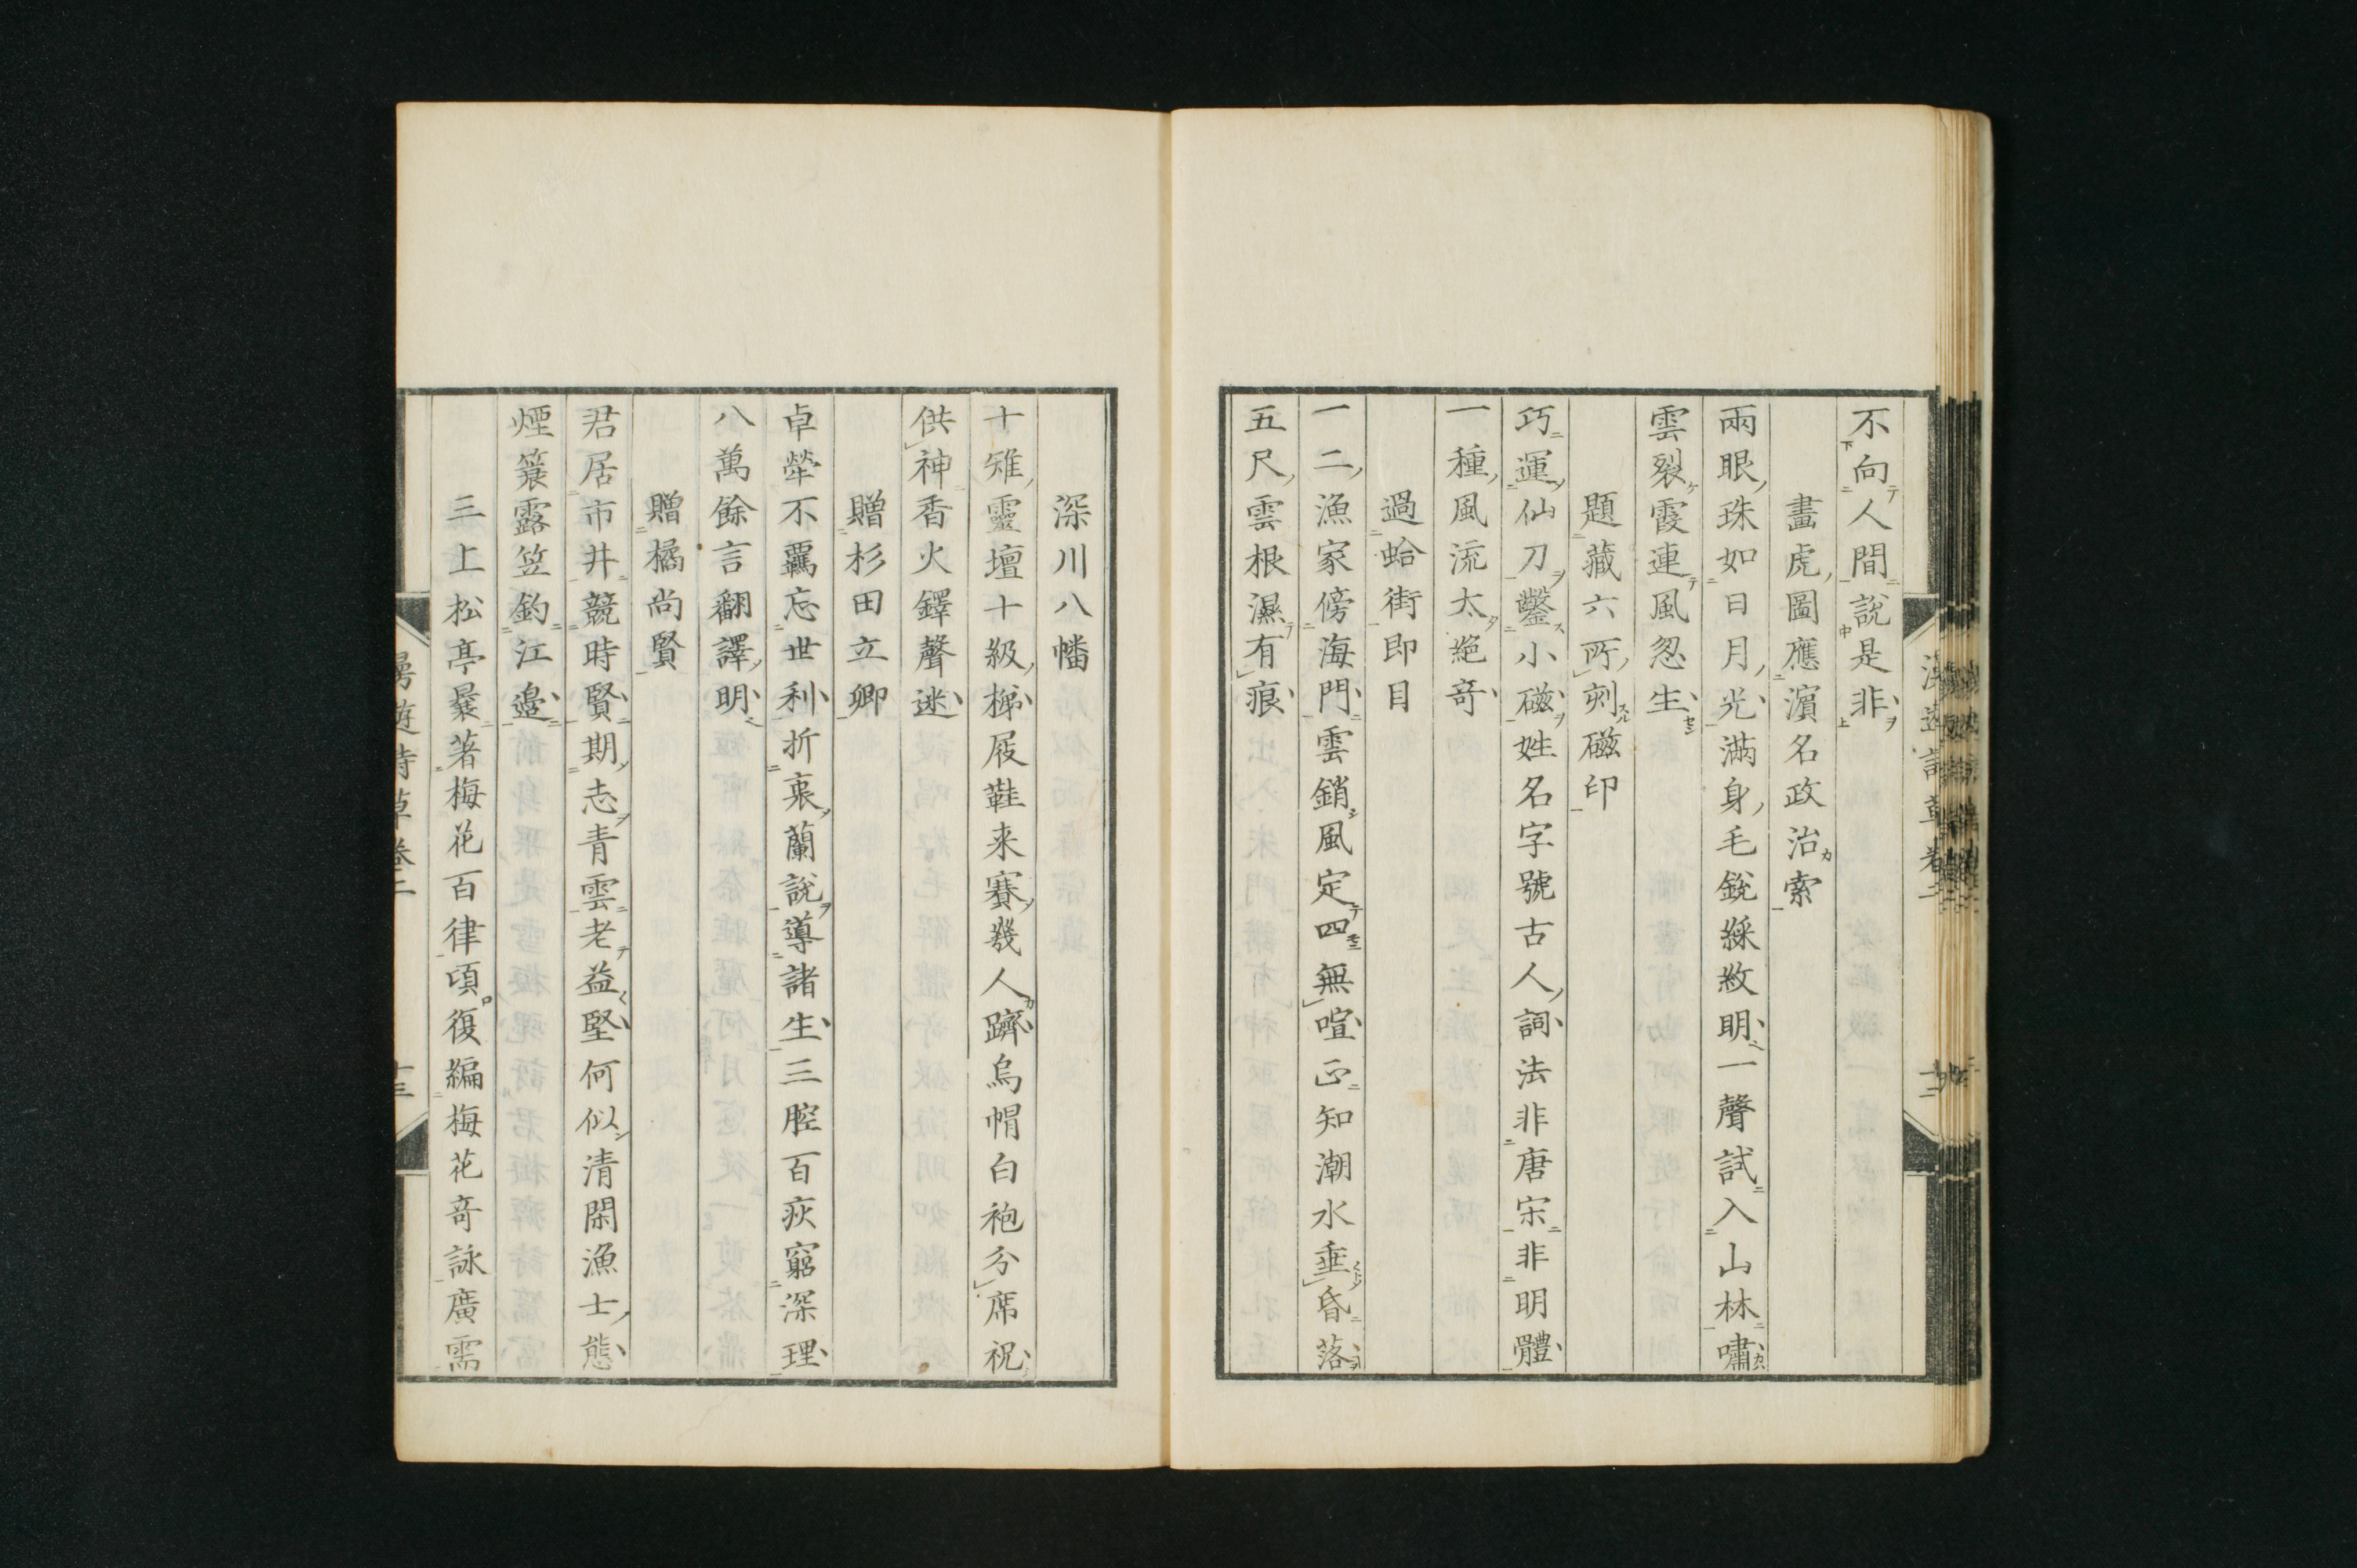 不向人間說是非
畫虎圖應濵名政治索
兩眼珠如日月光滿身毛銳綵紋明一聲試入山林嘯
雲裂霞連風忽生
題藏六所刻磁印
巧運仙刀鑿小磁姓名字號古人詞法非唐宋非明體
一種風流太絕竒
過蛤街即目
一二漁家傍海門雲銷風定四無喧正知潮水垂昏落
五尺雲根濕有痕
深川八幡
十雉靈壇十級梯屐鞋来賽幾人躋烏帽白袍分席祝
供神香火鐸聲迷
贈杉田立卿
卓犖不羈忘世利折裏蘭說導諸生三腔百疢窮深理
八萬餘言翻譯明
贈橘尚賢
君居市井競時賢期志青雲老益堅何似清閑漁士態
煙簑露笠釣江邉
三上松亭曩著梅花百律頃復編梅花竒詠廣需